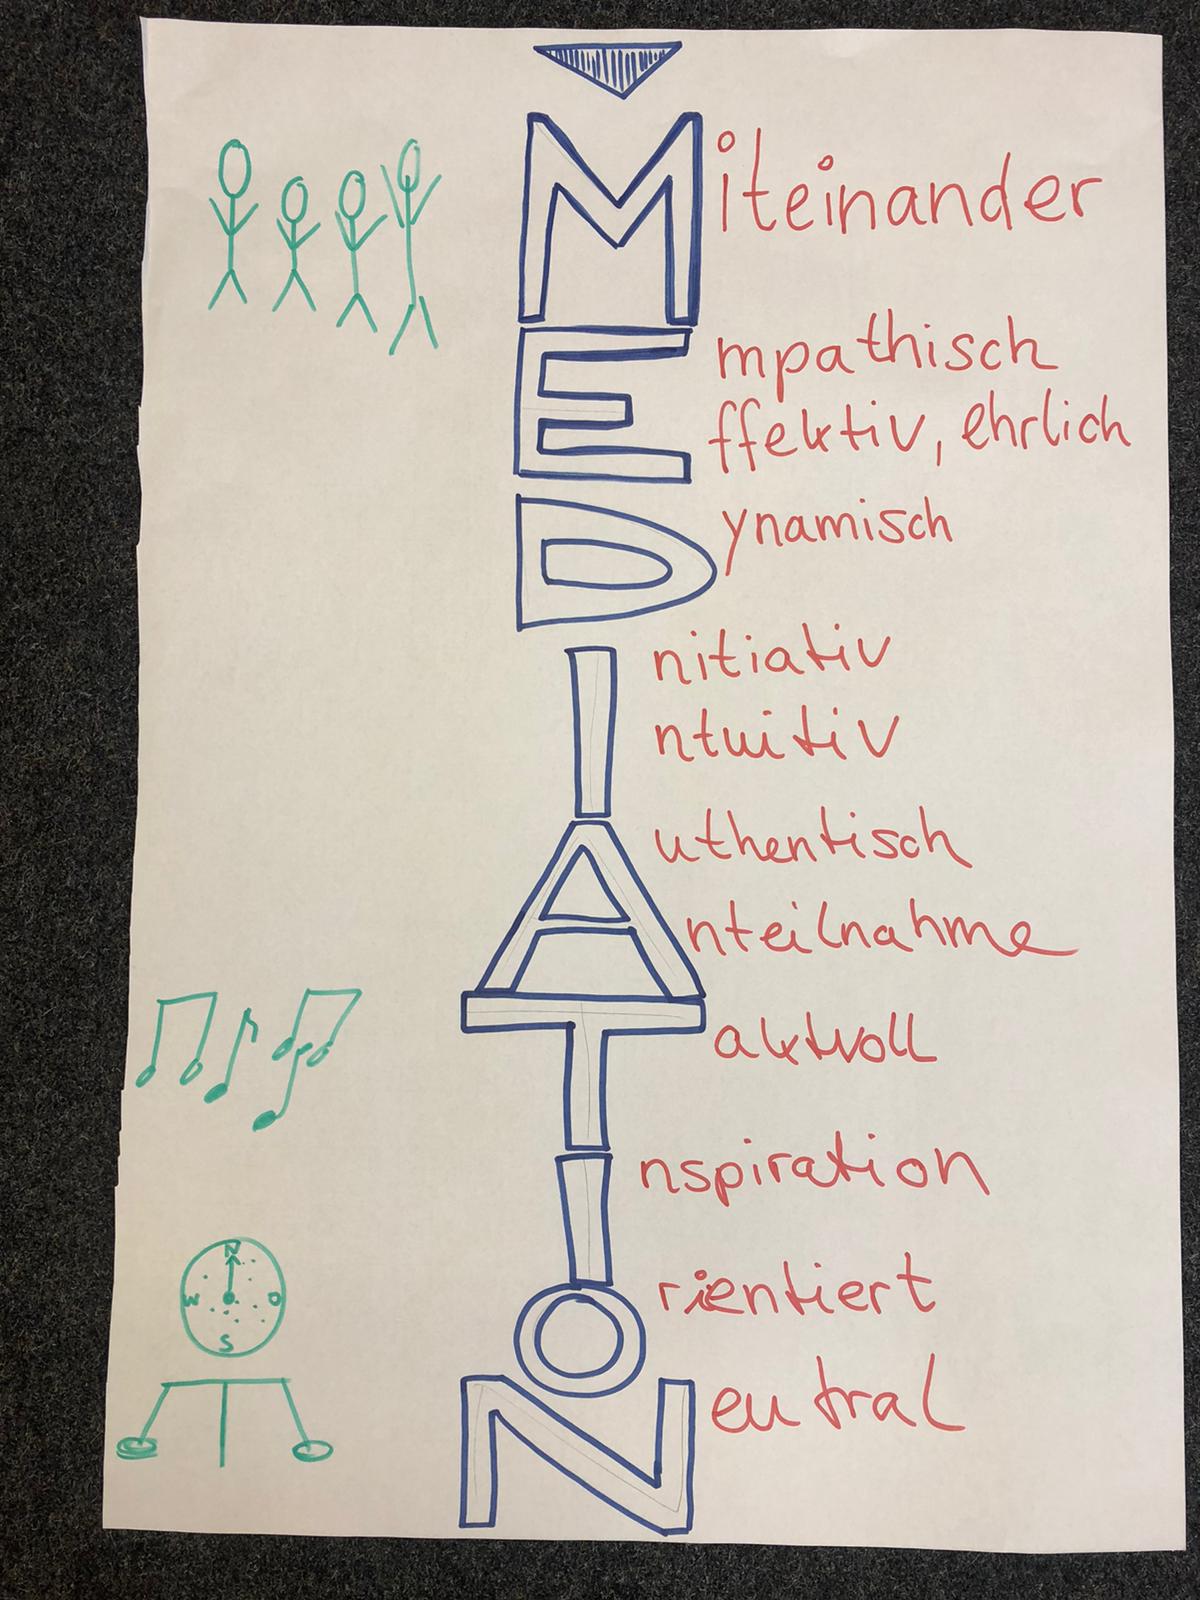 Miteinander
Empathisch
Effektiv, ehrlich
Dynamisch
Initiativ
Intuitiv
Authentisch
Anteilnahme
Taktvoll
Inspiration
Orientiert
Neutral
N
W O
S